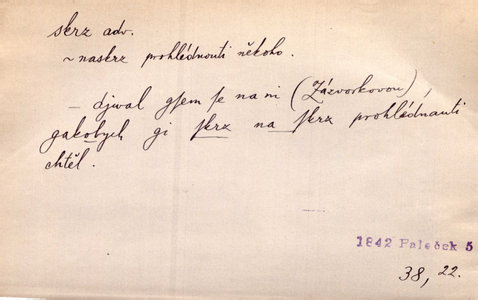 skrz adv.
~ naskrz prohlédnouti někoho.
– djwal gsem se na ni (Zázworkowou)
gakobych gi skrz na skrz prohlédnauti
chtěl.
1842 Paleček 5
38, 22.